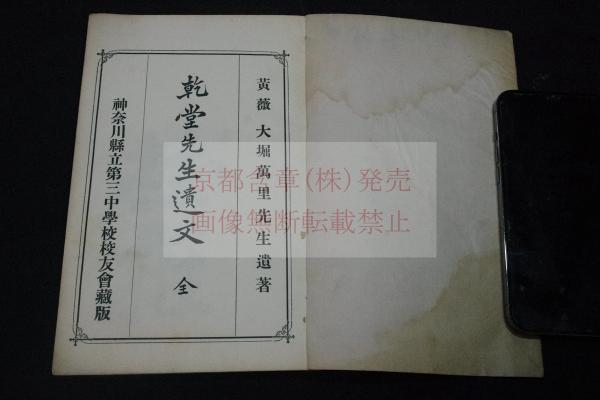 黃薇 大堀萬里先生遺著
乾堂先生遺文 全
神奈川縣立第三中學校校友會藏版
京都含章(株)発売
画像無断転載禁止